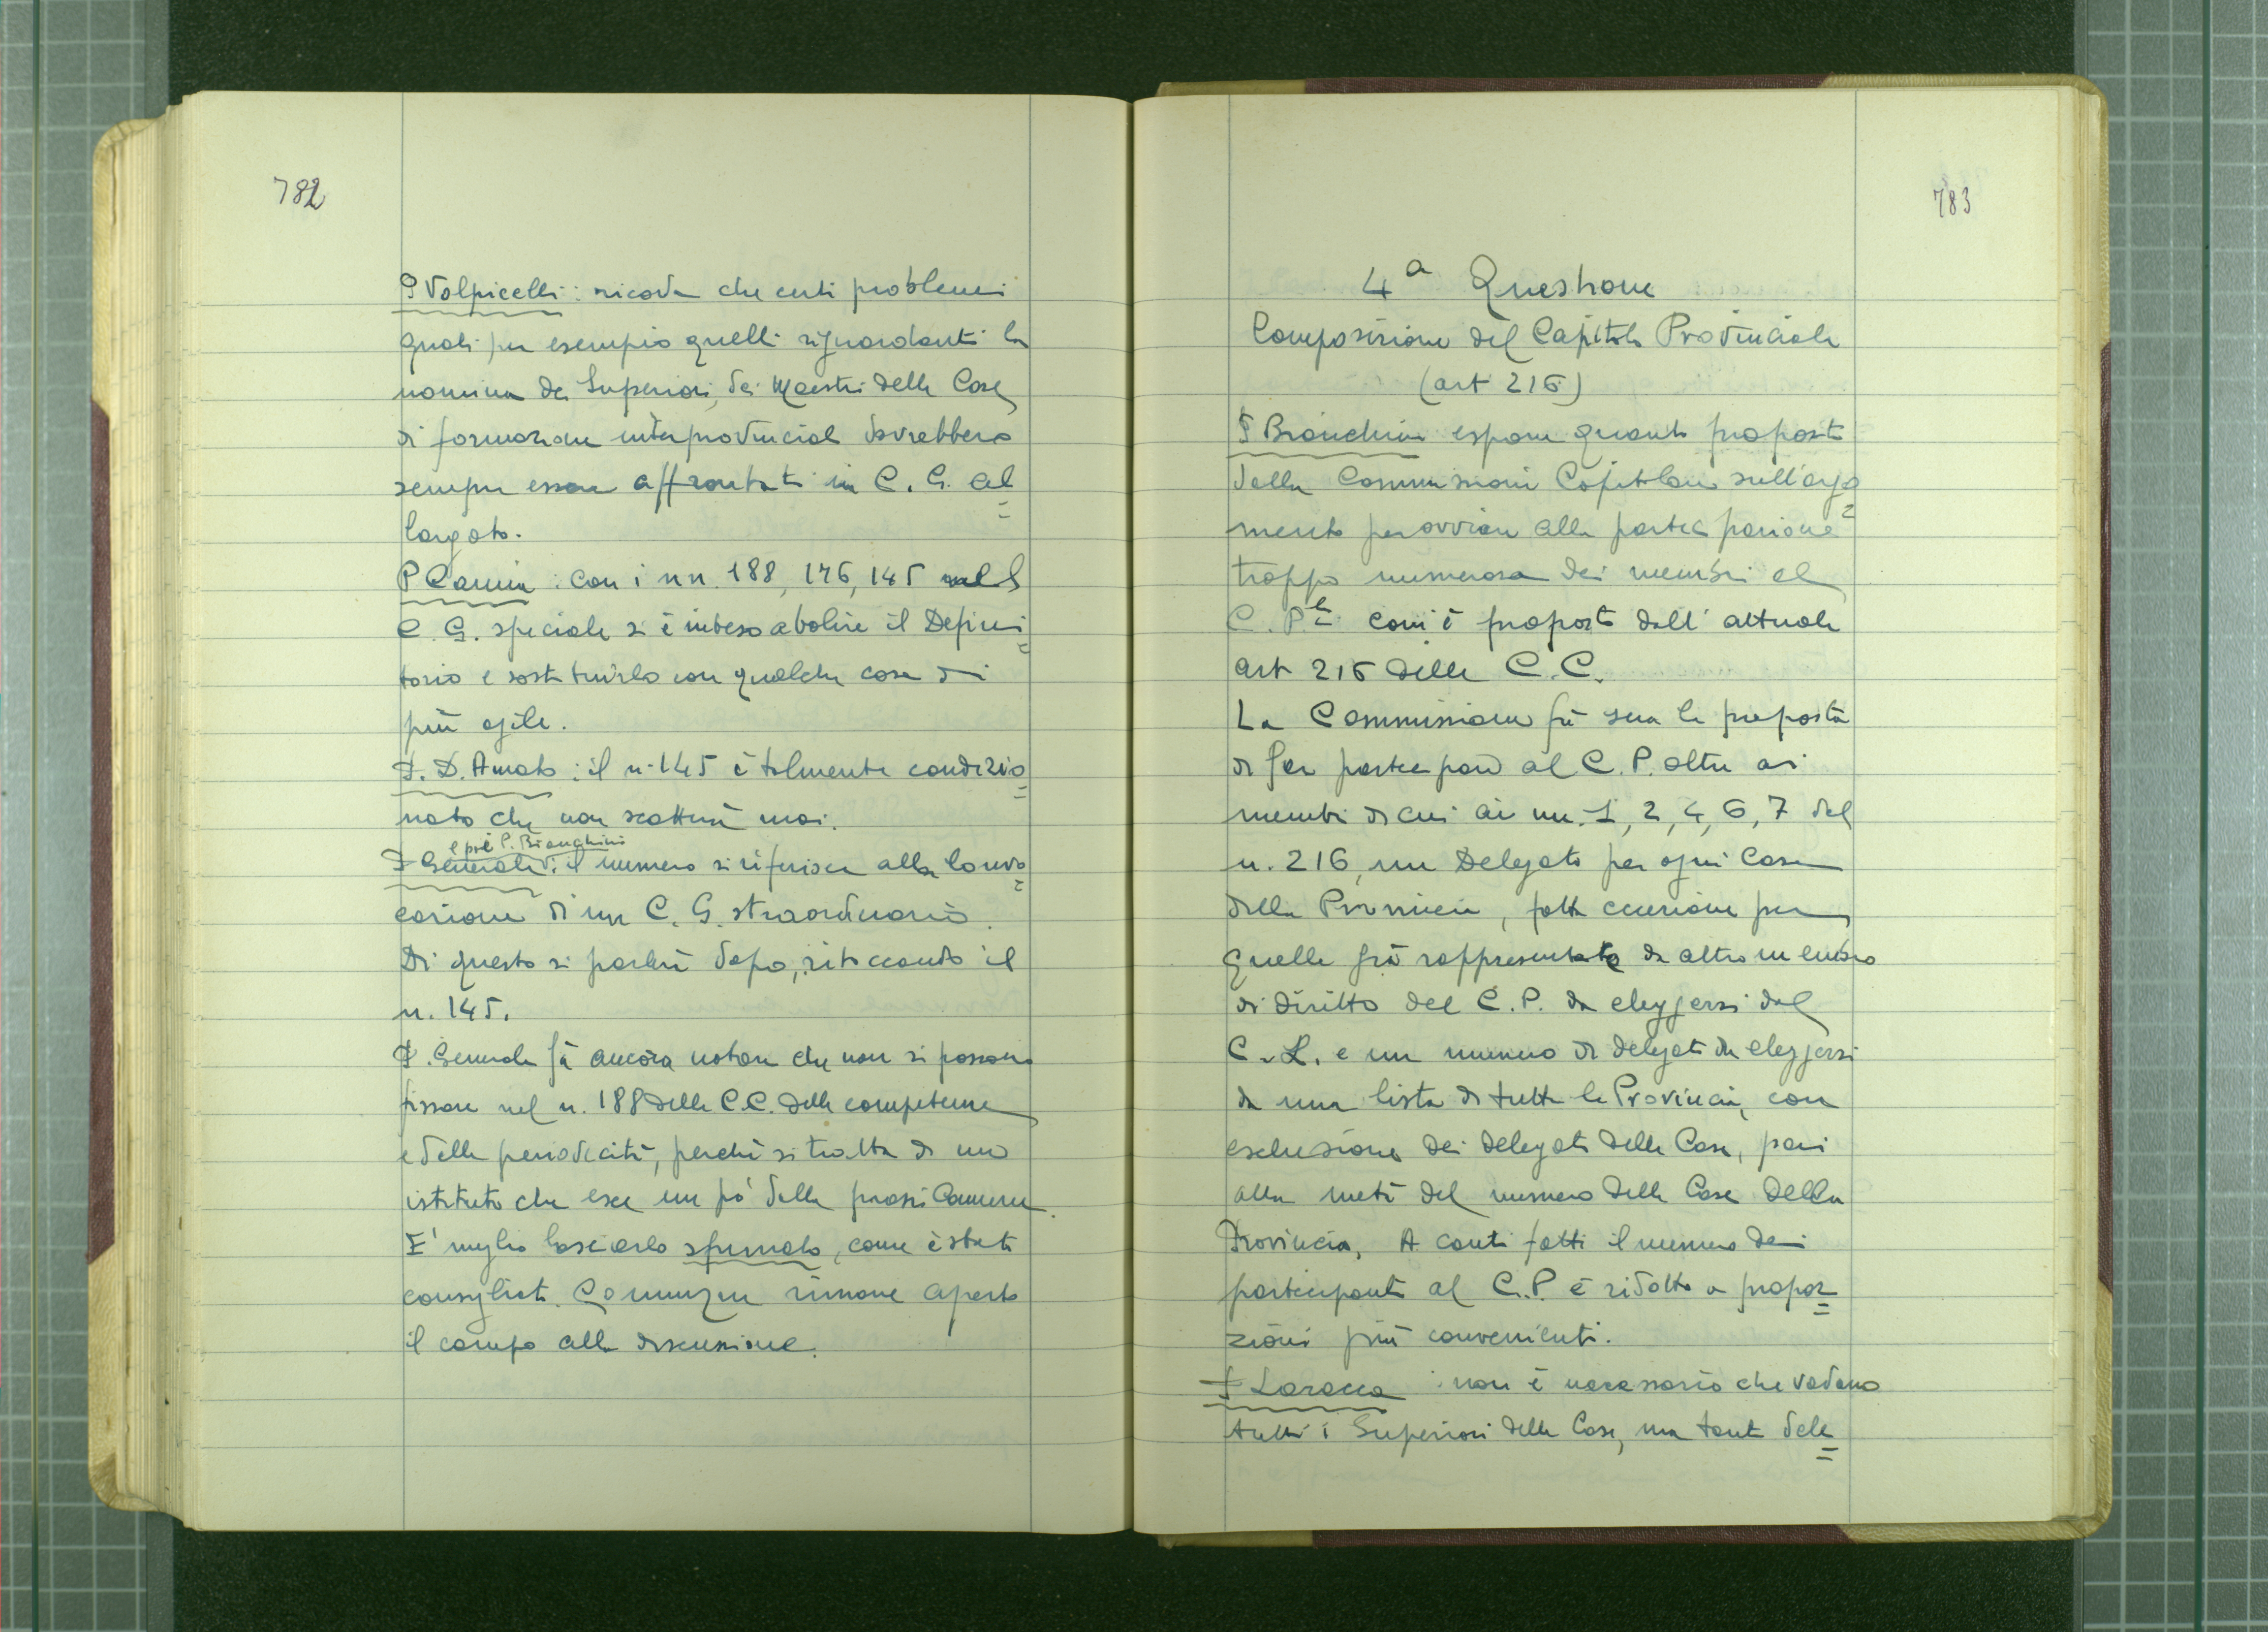 782
P Volpicelli: ricorda che certi problemi
quali per esempio quelli riguardanti la
nomina dei Superiori, dei Maestri delle Case
di formazione interprovinciale dovrebbero
sempre essere affrontati in C. G. al=
largato.
P Camia: con i nn. 188, 176, 145 nel
C. G. speciale si è inteso abolire il Defini=
torio e sostituirlo con qualche cosa di
più agile.
P. D. Amato: il n. 145 è talmente condizio=
nato che non scatterà mai.
e poi P. Bianchini
P Generale: il numero si riferisce alla convo=
cazione di un C. G. straordinario.
Di questo si parlerà dopo, ritoccando il
n. 145.
P. Generale fà ancora notare che non si possono
fissare nel n. 188 delle C.C. delle competenze
e delle periodicità, perché si tratta di uno
istituto che esce un pò dalla prassi comune.
E' meglio lasciarlo sfumato, come è stato
consigliato. Comunque rimane aperto
il campo alla discussione.
783
4a Questione
Composizione del Capitolo Provinciale
(art 216)
P Bianchini espone quanto proposto
dalla Commissione Capitolare sull'argo=
mento per ovviare alla partecipazione
troppo numerosa dei membri al
C. P.le com'è proposto dall'attuale
art 216 delle C.C.
La Commissione fà sua la proposta
di far partecipare al C. P. oltre ai
membri di cui ai nn. 1, 2, 4, 6, 7 del
n. 216, un Delegato per ogni Casa
della Provincia, fatta eccezione per
quelle già rappresentate da altro membro
di diritto del C. P. da eleggersi dal
C. L. e un numero di delegati da eleggersi
da una lista di tutta la Provincia, con
esclusione dei delegati delle Case, pari
alla metà del numero delle Case della
Provincia. A conti fatti il numero dei
partecipanti al C.P. è ridotto a propor=
zioni più convenienti.
P Larocca: non è necessario che vadano
tutti i Superiori delle Case, ma tanti dele=